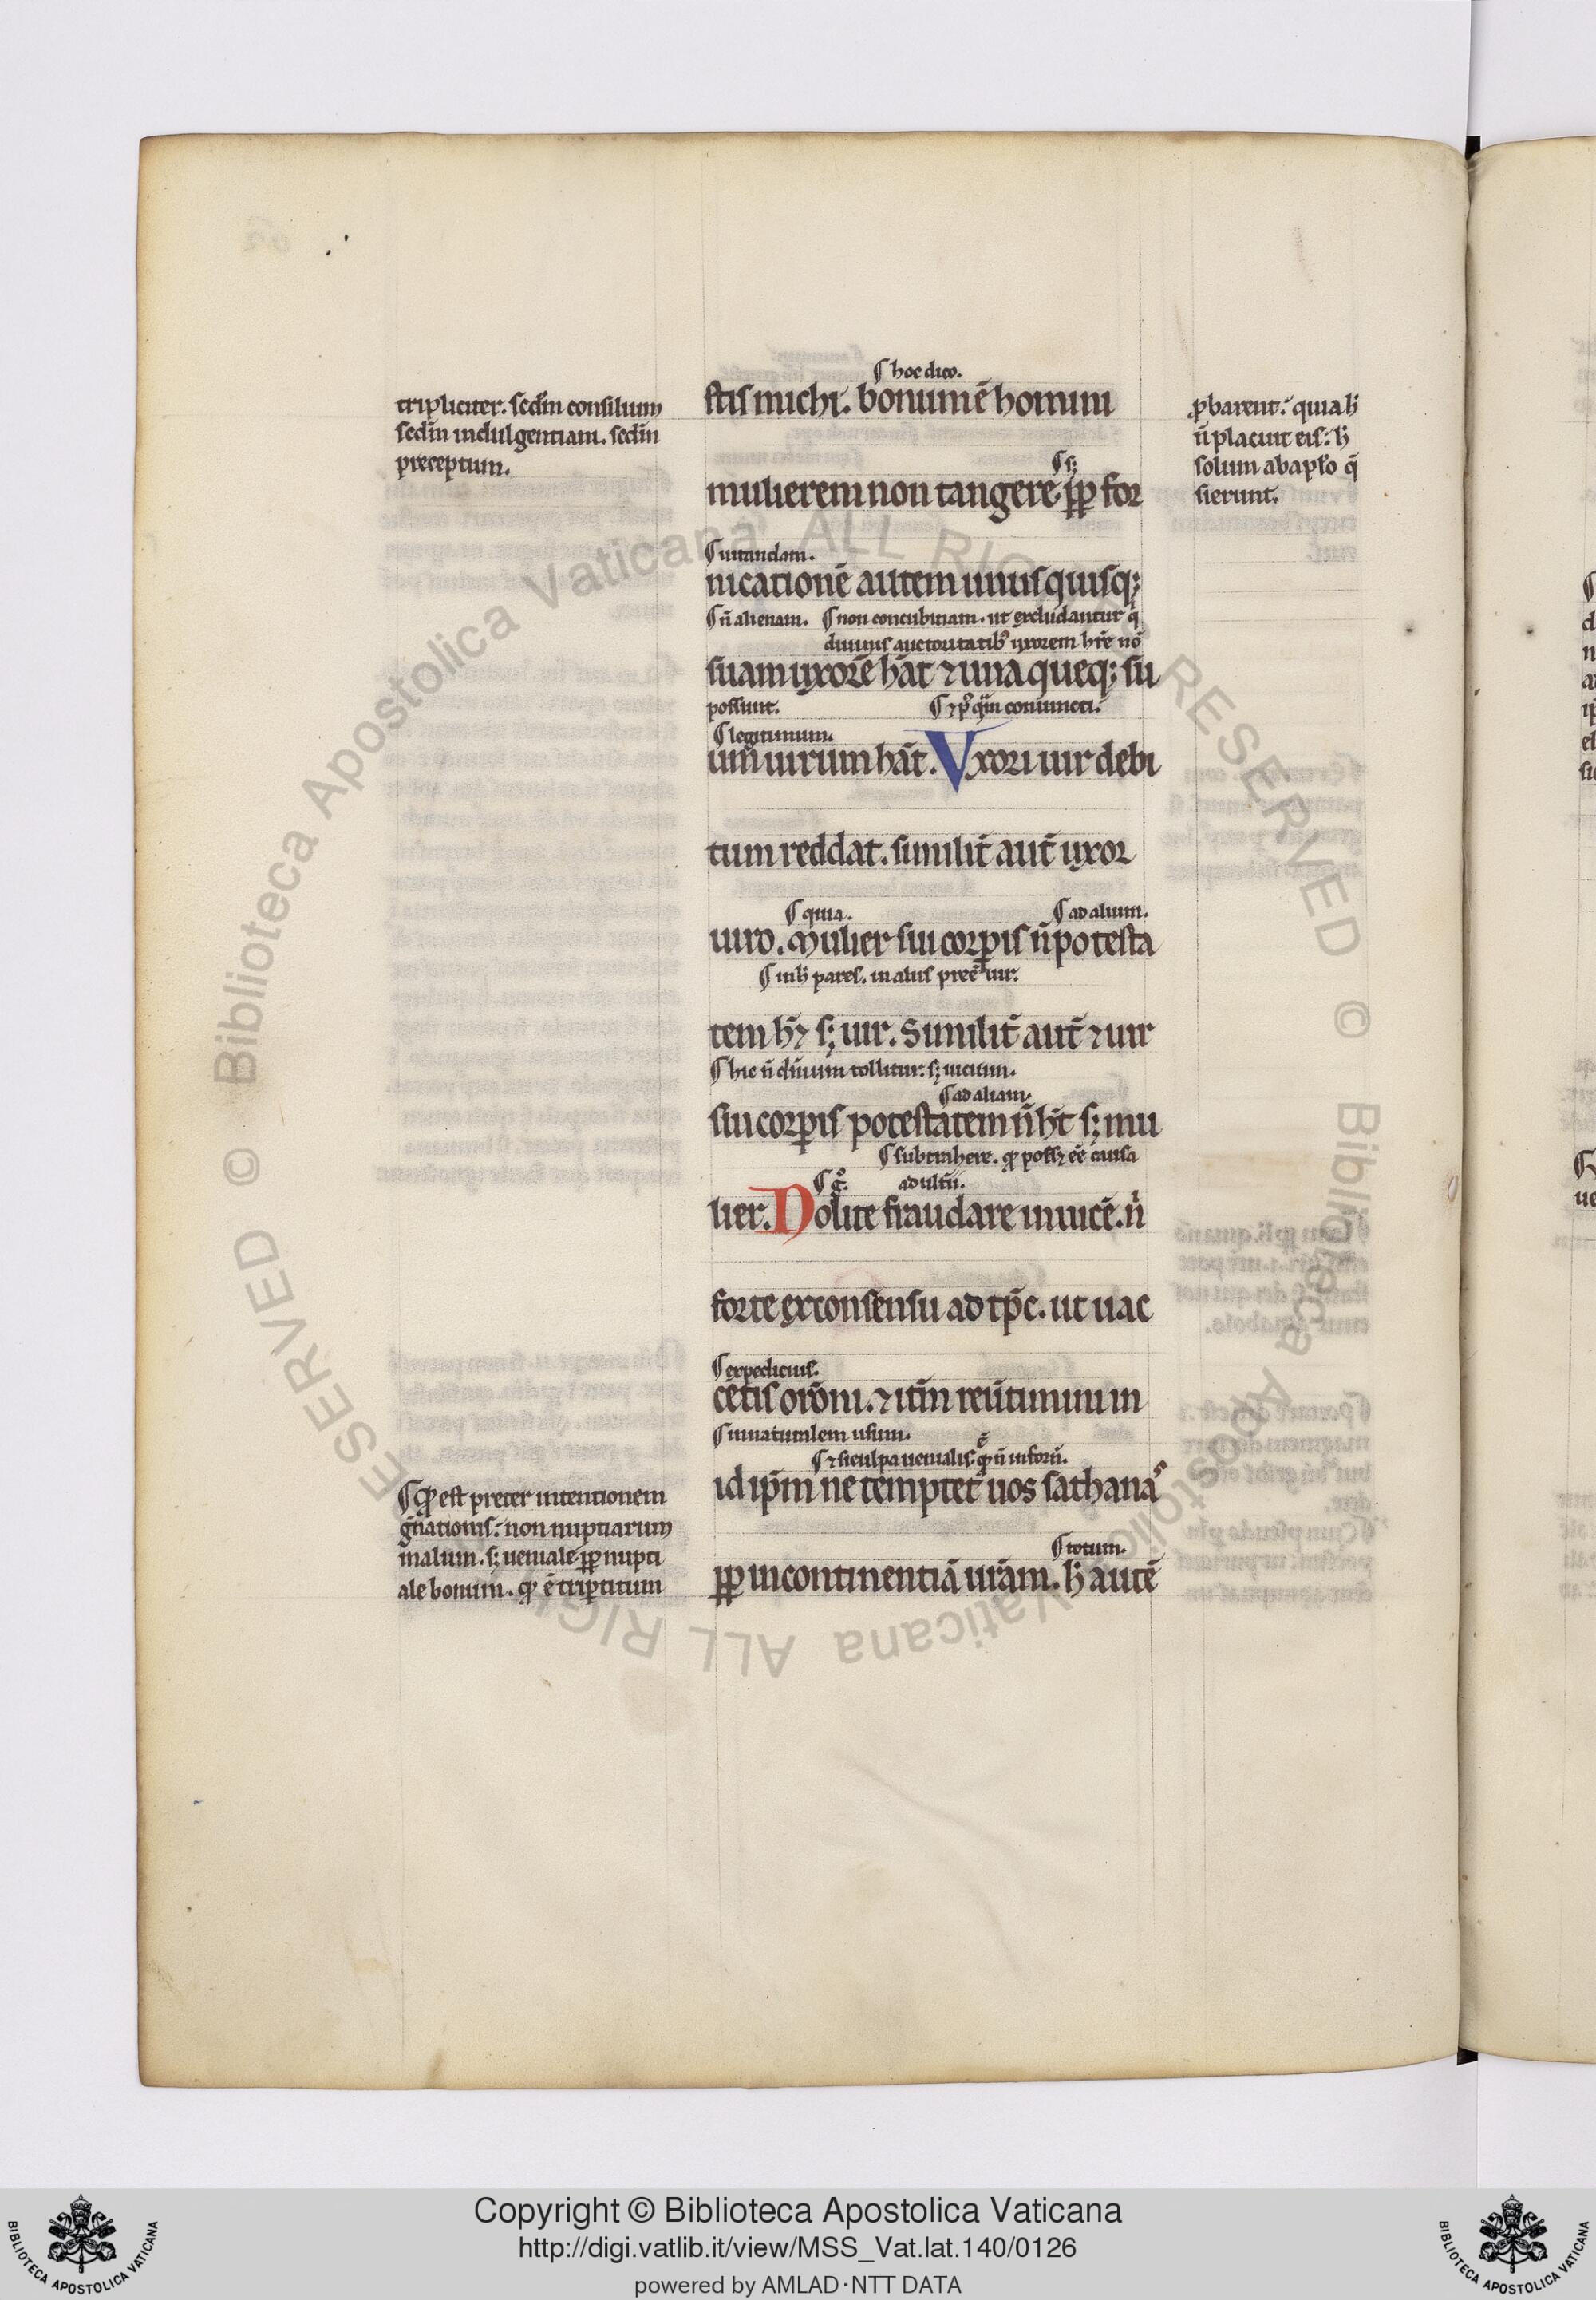 tripliciter. scd̄m consilium
scd̄m indulgentiam. scd̄m
preceptum.
¶ hoc dico.
stis michi. bonum ē homini
¶ s;
mulierem non tangere. ꝓp for
¶ uitandam.
nicationē autem unusquisq;
¶ n̄ alienam. ¶ non concubinam. ut excludantur q̄
diuinis auctoritatib; uxorem hr̄e nō
suam uxorē hāt ⁊ una queq; su
possunt. ¶ ⁊ pꝰ q̄m coniuncti.
¶ legitimum.
um uirum hāt. Vxori uir debi
tum reddat. similit̄ aut̄ uxor
¶ quia. ¶ ad alium.
uiro. Mulier sui corꝑis n̄ potesta
¶ in h̄ pares. in aliis preē uir.
tem hꝫ s; uir. Similit̄ aut̄ ⁊ uir
¶ hic n̄ tollitur. s; uicium.
¶ ad aliam.
sui corꝑis potestatem n̄ ht̄ s; mu
¶ subtrahere. ꝙ possꝫ eē causa
¶ gͦ. adult̄ii.
lier. Nolite fraudare inuicē. n̄
forte ex consensu ad tp̄c. ut uac
¶ expeditius.
cetis orōni. ⁊ itm̄ reūtimini in
¶ naturalem usum.
¶ ⁊ si culpa uenialis ē ꝙ n̄ inform̄.
id ip̄m ne temptet uos sathanaˢ
¶ totum.
ꝓp incontinentiā ur̄am. h̄ autē
ꝓbarent. quia h̄
n̄ placuit eis. h̄
solum ab aposto q̄
sierunt.
¶ ꝙ est preter intentionem
gn̄ationis. non nuptiarum
malum. s; ueniale ꝓp nupti
ale bonum. ꝙ ē tripertitum
Copyright © Biblioteca Apostolica Vaticana
http://digi.vatlib.it/view/MSS_Vat.lat.140/0126
powered by AMLAD·NTT DATA
BIBLIOTECA APOSTOLICA VATICANA
BIBLIOTECA APOSTOLICA VATICANA
© Biblioteca Apostolica Vaticana ALL RIGHTS RESERVED © Biblioteca Apostolica Vaticana ALL RIGHTS RESERVED